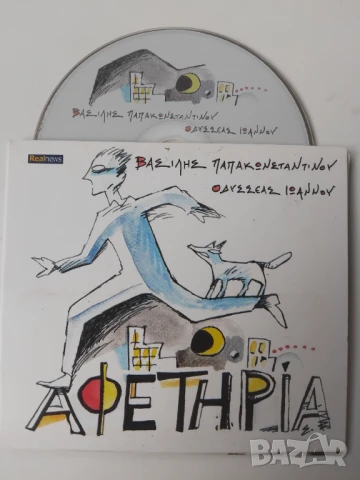 ΒΑΣΙΛΗΣ ΠΑΠΑΚΩΝΣΤΑΝΤΙΝΟΥ
ΟΔΥΣΣΕΑΣ ΙΩΑΝΝΟΥ
Realnews
ΒΑΣΙΛΗΣ ΠΑΠΑΚΩΝΣΤΑΝΤΙΝΟΥ
ΟΔΥΣΣΕΑΣ ΙΩΑΝΝΟΥ
ΑΦΕΤΗΡΙΑ
BAZAR